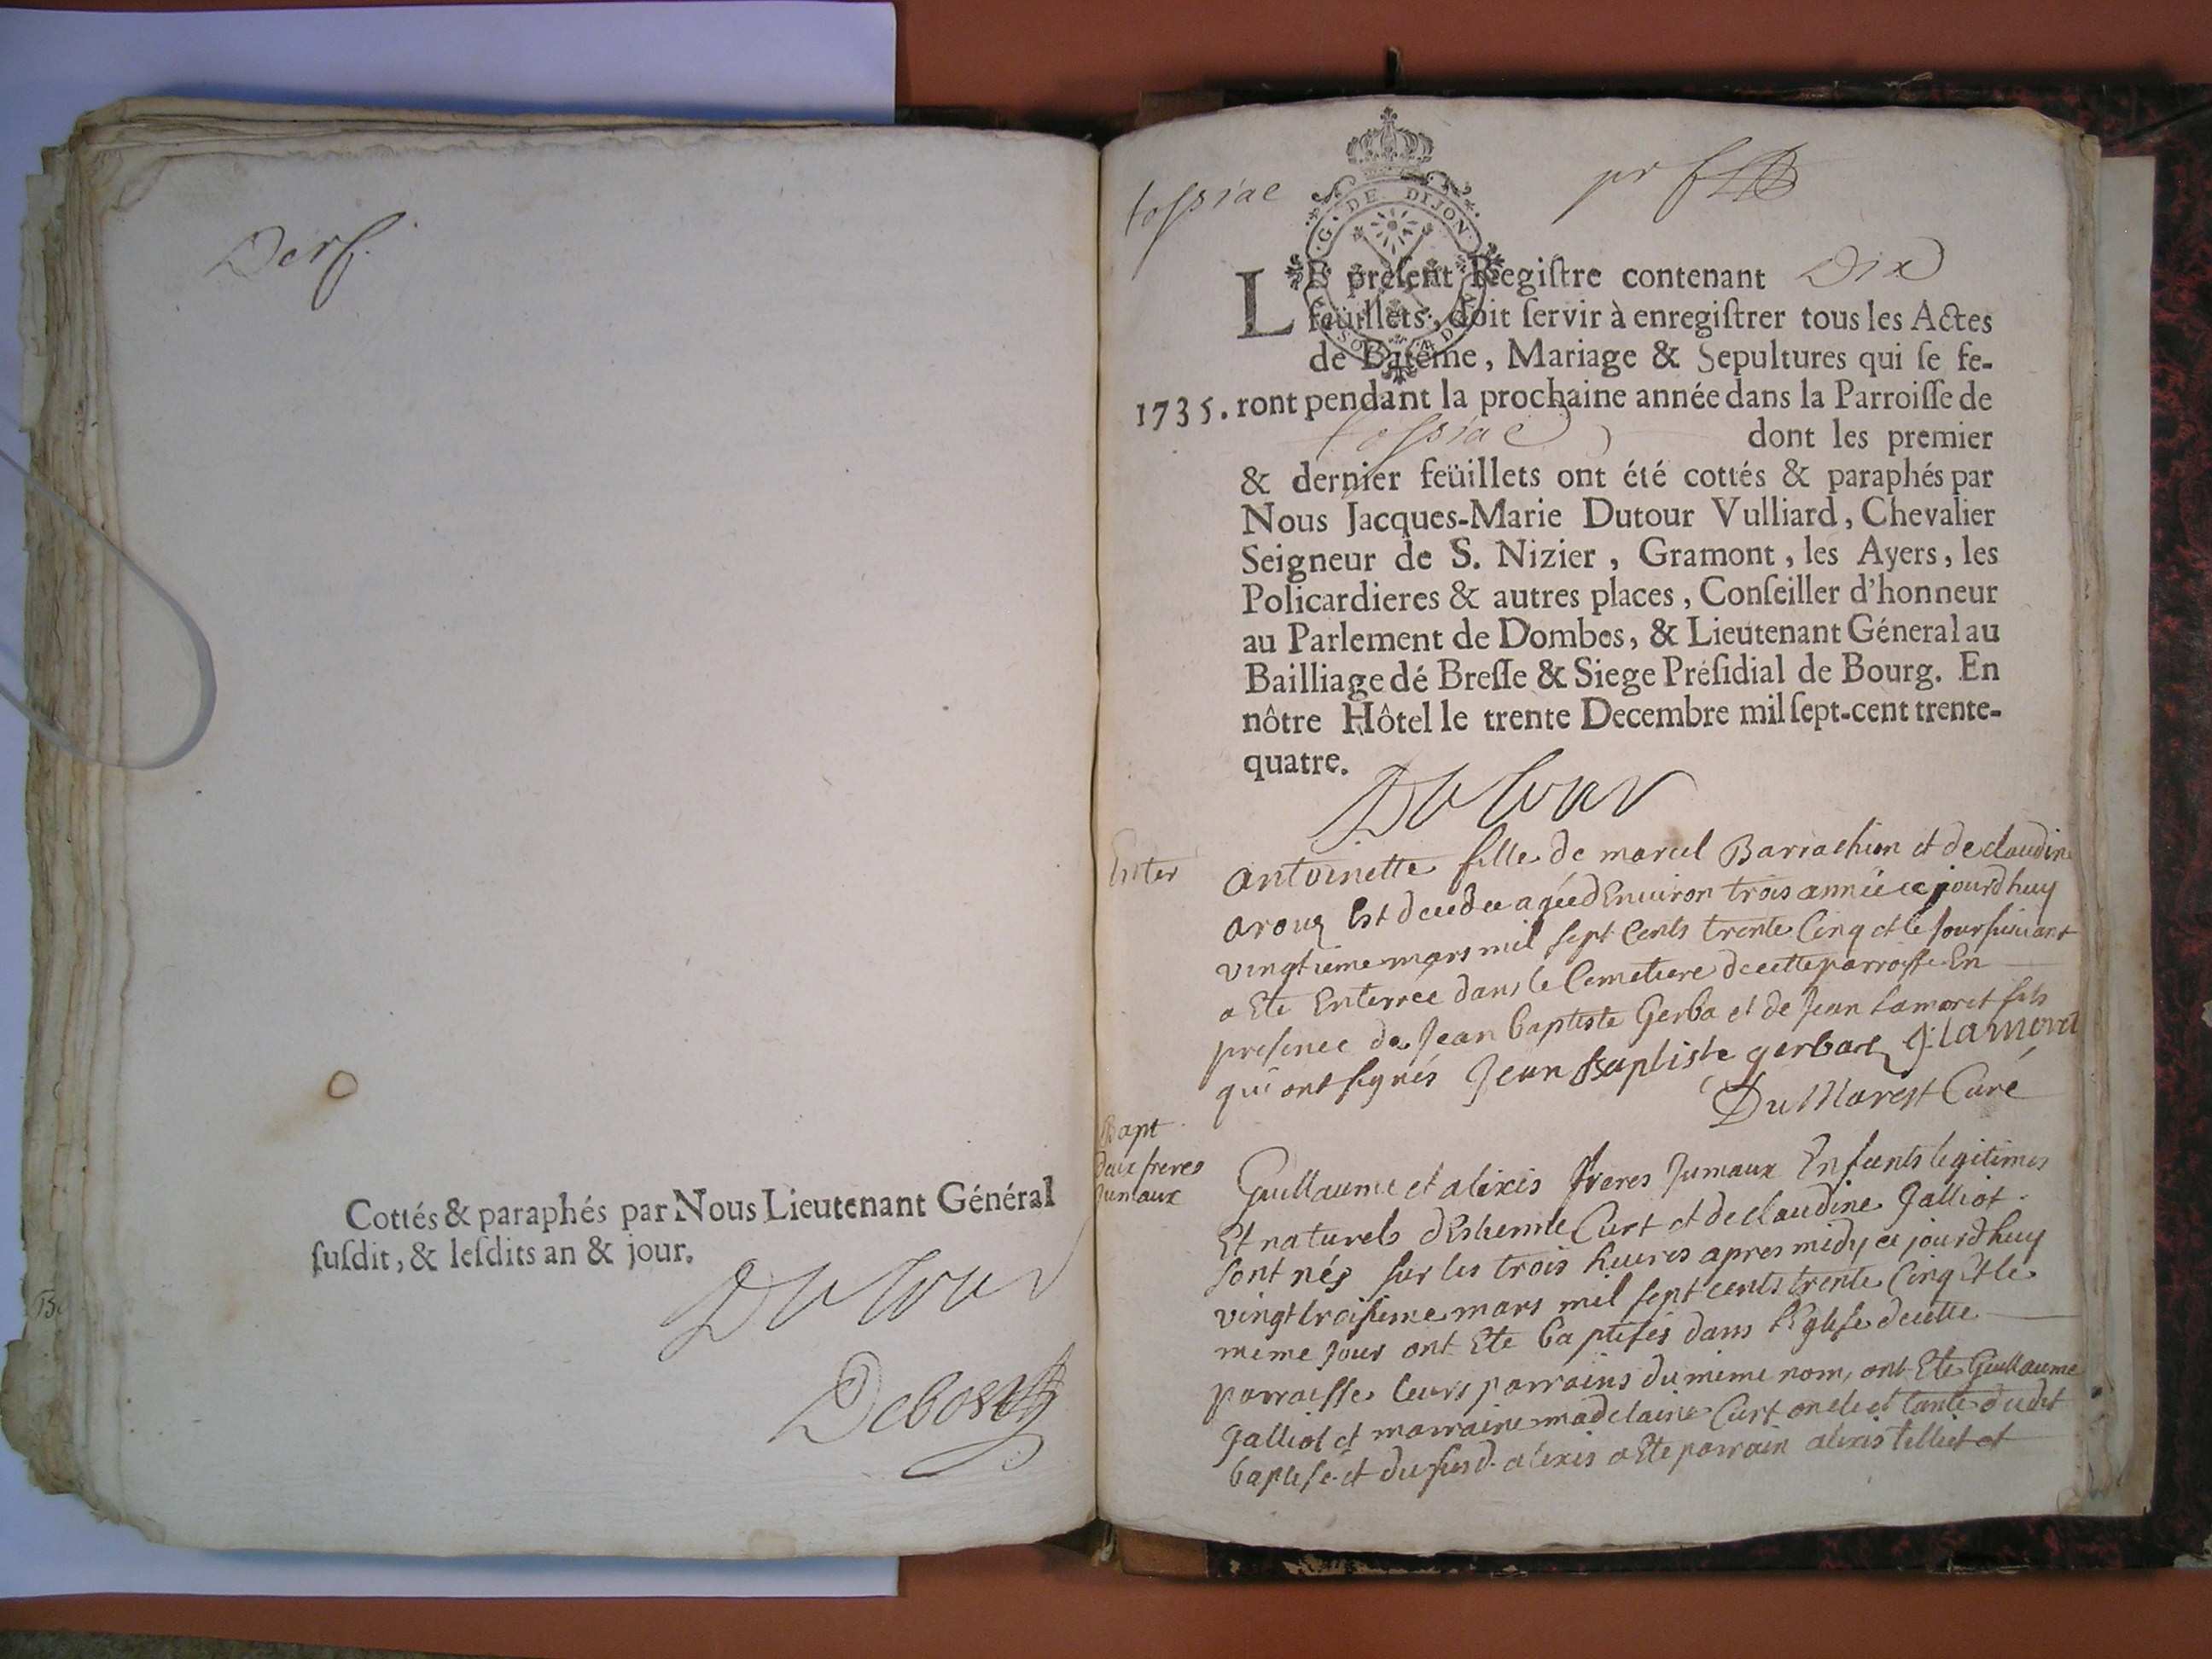 Derf.
Cottés & paraphés par Nous Lieutenant Général
ſuſdit, & leſdits an & jour.
Dutour
Debost
fossiac
pr f
G. DE DIJON
LE preſent Regiſtre contenant Dix
feüillets, doit ſervir à enregiſtrer tous les Actes
de Batême, Mariage & Sepultures qui ſe fe-
1735. ront pendant la prochaine année dans la Parroiſſe de
fossiac dont les premier
& dernier feüillets ont été cottés & paraphés par
Nous Jacques-Marie Dutour Vulliard, Chevalier
Seigneur de S. Nizier, Gramont, les Ayers, les
Policardieres & autres places, Conſeiller d'honneur
au Parlement de Dombes, & Lieutenant Géneral au
Bailliage dé Breſſe & Siege Préſidial de Bourg. En
nôtre Hôtel le trente Decembre mil ſept-cent trente-
quatre.
Dutour
Enter
Antoinette fille de marcel Barrachin et de claudine
arouz Est decedee agée d'Environ trois année ce jourdhuy
vingtieme mars mil sept Cents trente Cinq et le jour suivant
a Ete Enterrée dans le Cemetiere de cette parroisse En
presence de Jean baptiste Gerba et de Jean Lamoret fils
qui ont signés Jean Baptiste gerbart J: lamoret
Du Marest Curé
Bapt
deux freres
Jumaux
Guillaume et alexis freres Jumaux Enfants legitimes
Et naturels dEstienne Curt et de claudine Galliot
sont nés sur les trois heures apres midy ce jourdhuy
vingt troisieme mars mil sept cents trente Cinq Et le
meme Jour ont Ete baptisés dans l'Eglise de cette
parroisse leurs parrains du meme nom, ont Ete Guillaume
Galliot et marraine madelaine Curt oncle et tante dudit
baptisé et du susd. alexis a Ete parrain alexis telliet et